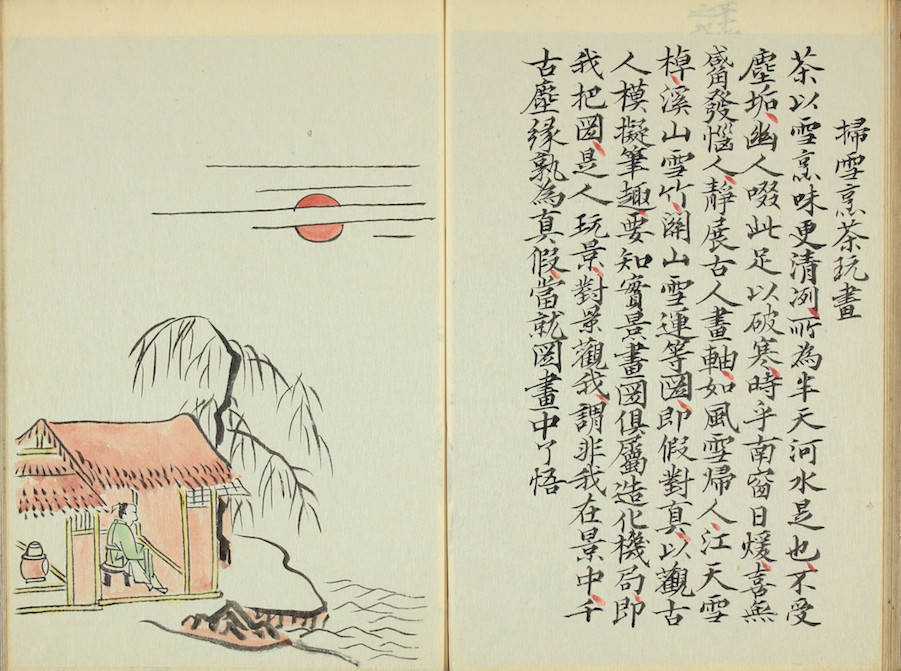 掃雪烹茶玩畫
茶以雪烹味更清冽、所為半天河水是也、不受
塵垢、幽人啜此足以破寒、時乎南窗日煖、喜無
觱發惱人、靜展古人畫軸、如風雪歸人、江天雪
棹、溪山雪竹、關山雪運等圖、即假對真、以觀古
人模擬筆趣、要知實景畫圖俱屬造化機局、即
我把圖、是人玩景、對景觀我、謂非我在景中、千
古塵緣孰為真假、當就圖畫中了悟